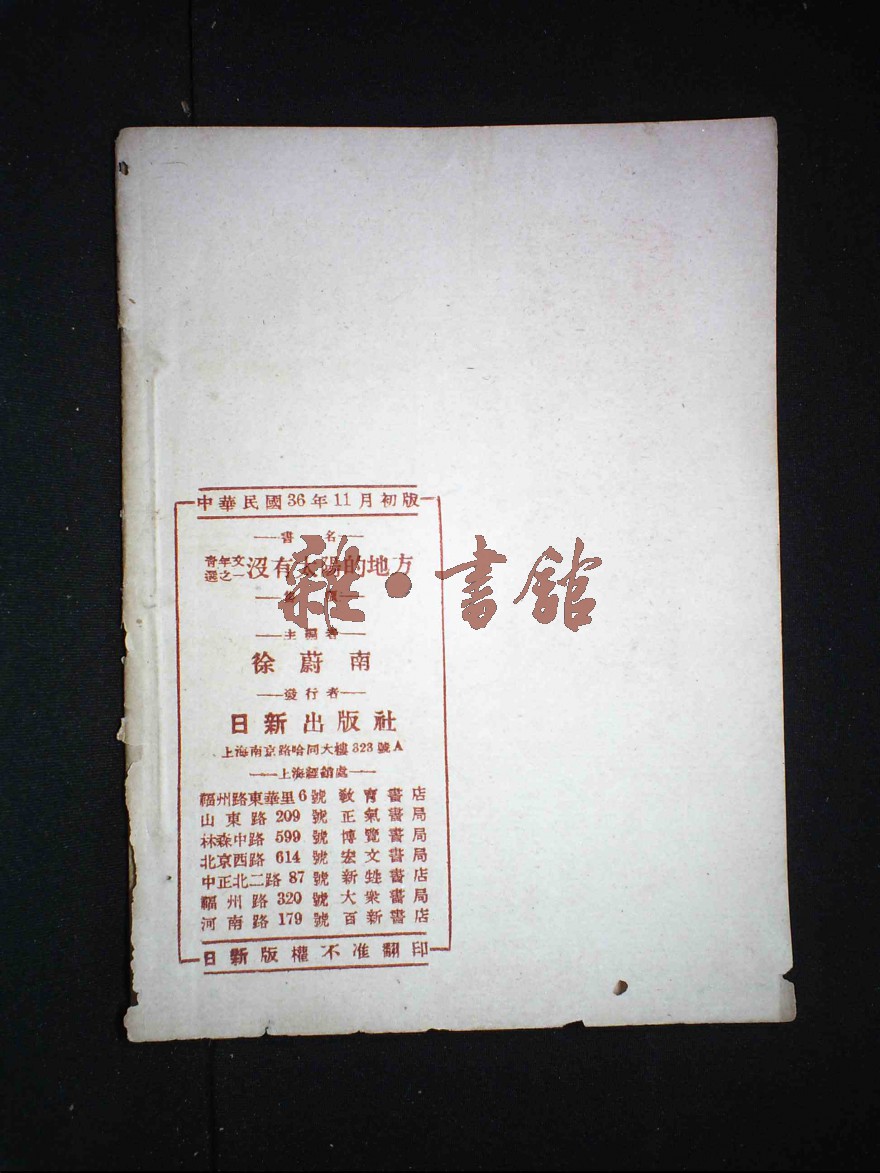 中華民國36年11月初版
書名
青年文選之一 沒有太陽的地方
主編者
徐蔚南
發行者
日新出版社
上海南京路哈同大樓323號A
上海經銷處
福州路東華里6號 教育書店
山東路209號 正氣書局
林森中路599號 博覽書局
北京西路614號 宏文書局
中正北二路87號 新甡書店
福州路320號 大衆書局
河南路179號 百新書店
日新版權不准翻印
雜·書館